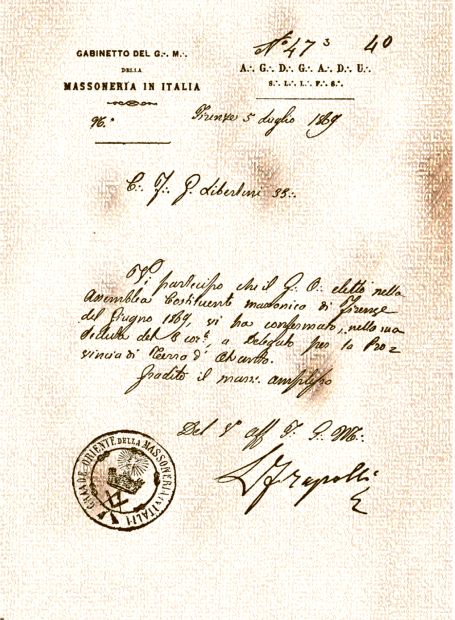 Nº 473 40
GABINETTO DEL G∴ M∴
DELLA
MASSONERIA IN ITALIA
A∴ G∴ D∴ G∴ A∴ D∴ U∴
S∴ L∴ L∴ F∴ S∴
Nº
Firenze 5 luglio 1869
C∴ F∴ P. Libertini 33∴
Vi partecipo che il G∴ O∴ eletto nella
Assemblea Costituente massonica di Firenze
del Giugno 1869, vi ha confermato, nella sua
seduta del 2 corr., a Delegato per la Pro-
vincia di Terra d'Otranto.
Gradite il mass∴ amplesso
Del Vº aff F∴ G∴ M∴
L Frapolli
GRANDE ORIENTE DELLA MASSONERIA IN ITALIA